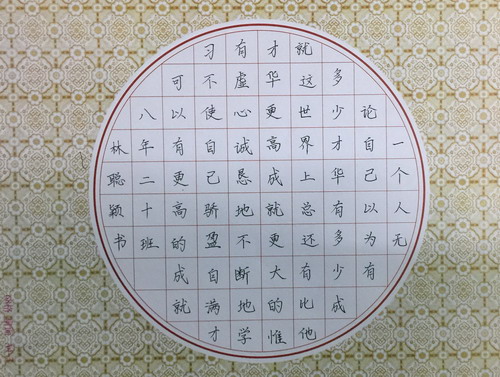 一个人无
论自己以为有
多少才华有多少成
就这世界上总还有比他
才华更高成就更大的惟
有虚心诚恳地不断地学
习不使自己骄盈自满才
可以有更高的成就
八年二十班
林聪颖书